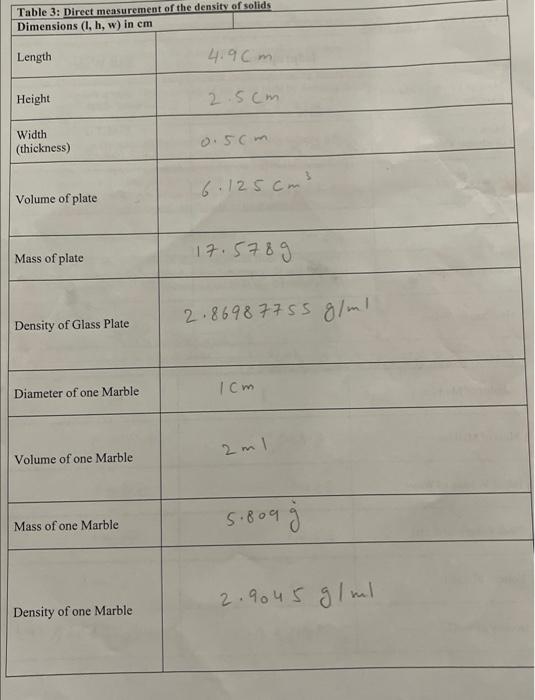 Table 3: Direct measurement of the density of solids
Dimensions (l, h, w) in cm
Length 4.9cm
Height 2.5cm
Width
(thickness) 0.5cm
Volume of plate 6.125 cm³
Mass of plate 17.578g
Density of Glass Plate 2.86987755 g/ml
Diameter of one Marble 1cm
Volume of one Marble 2ml
Mass of one Marble 5.809 g
Density of one Marble 2.9045 g/ml